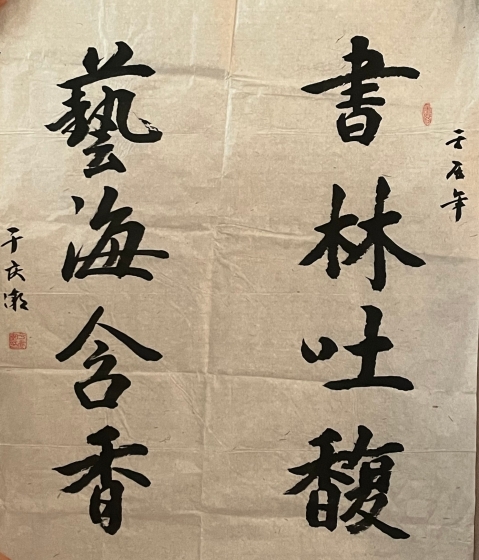 壬辰年
書林吐馥
藝海含香
于庆